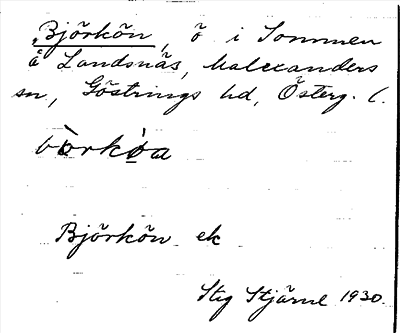 Björkön, ö i Sommen
å Landsnäs, Malexanders
sn, Göstrings hd, Österg. l.
bö̀rkö́a
Björkön ek
Stig Stjärne 1930.